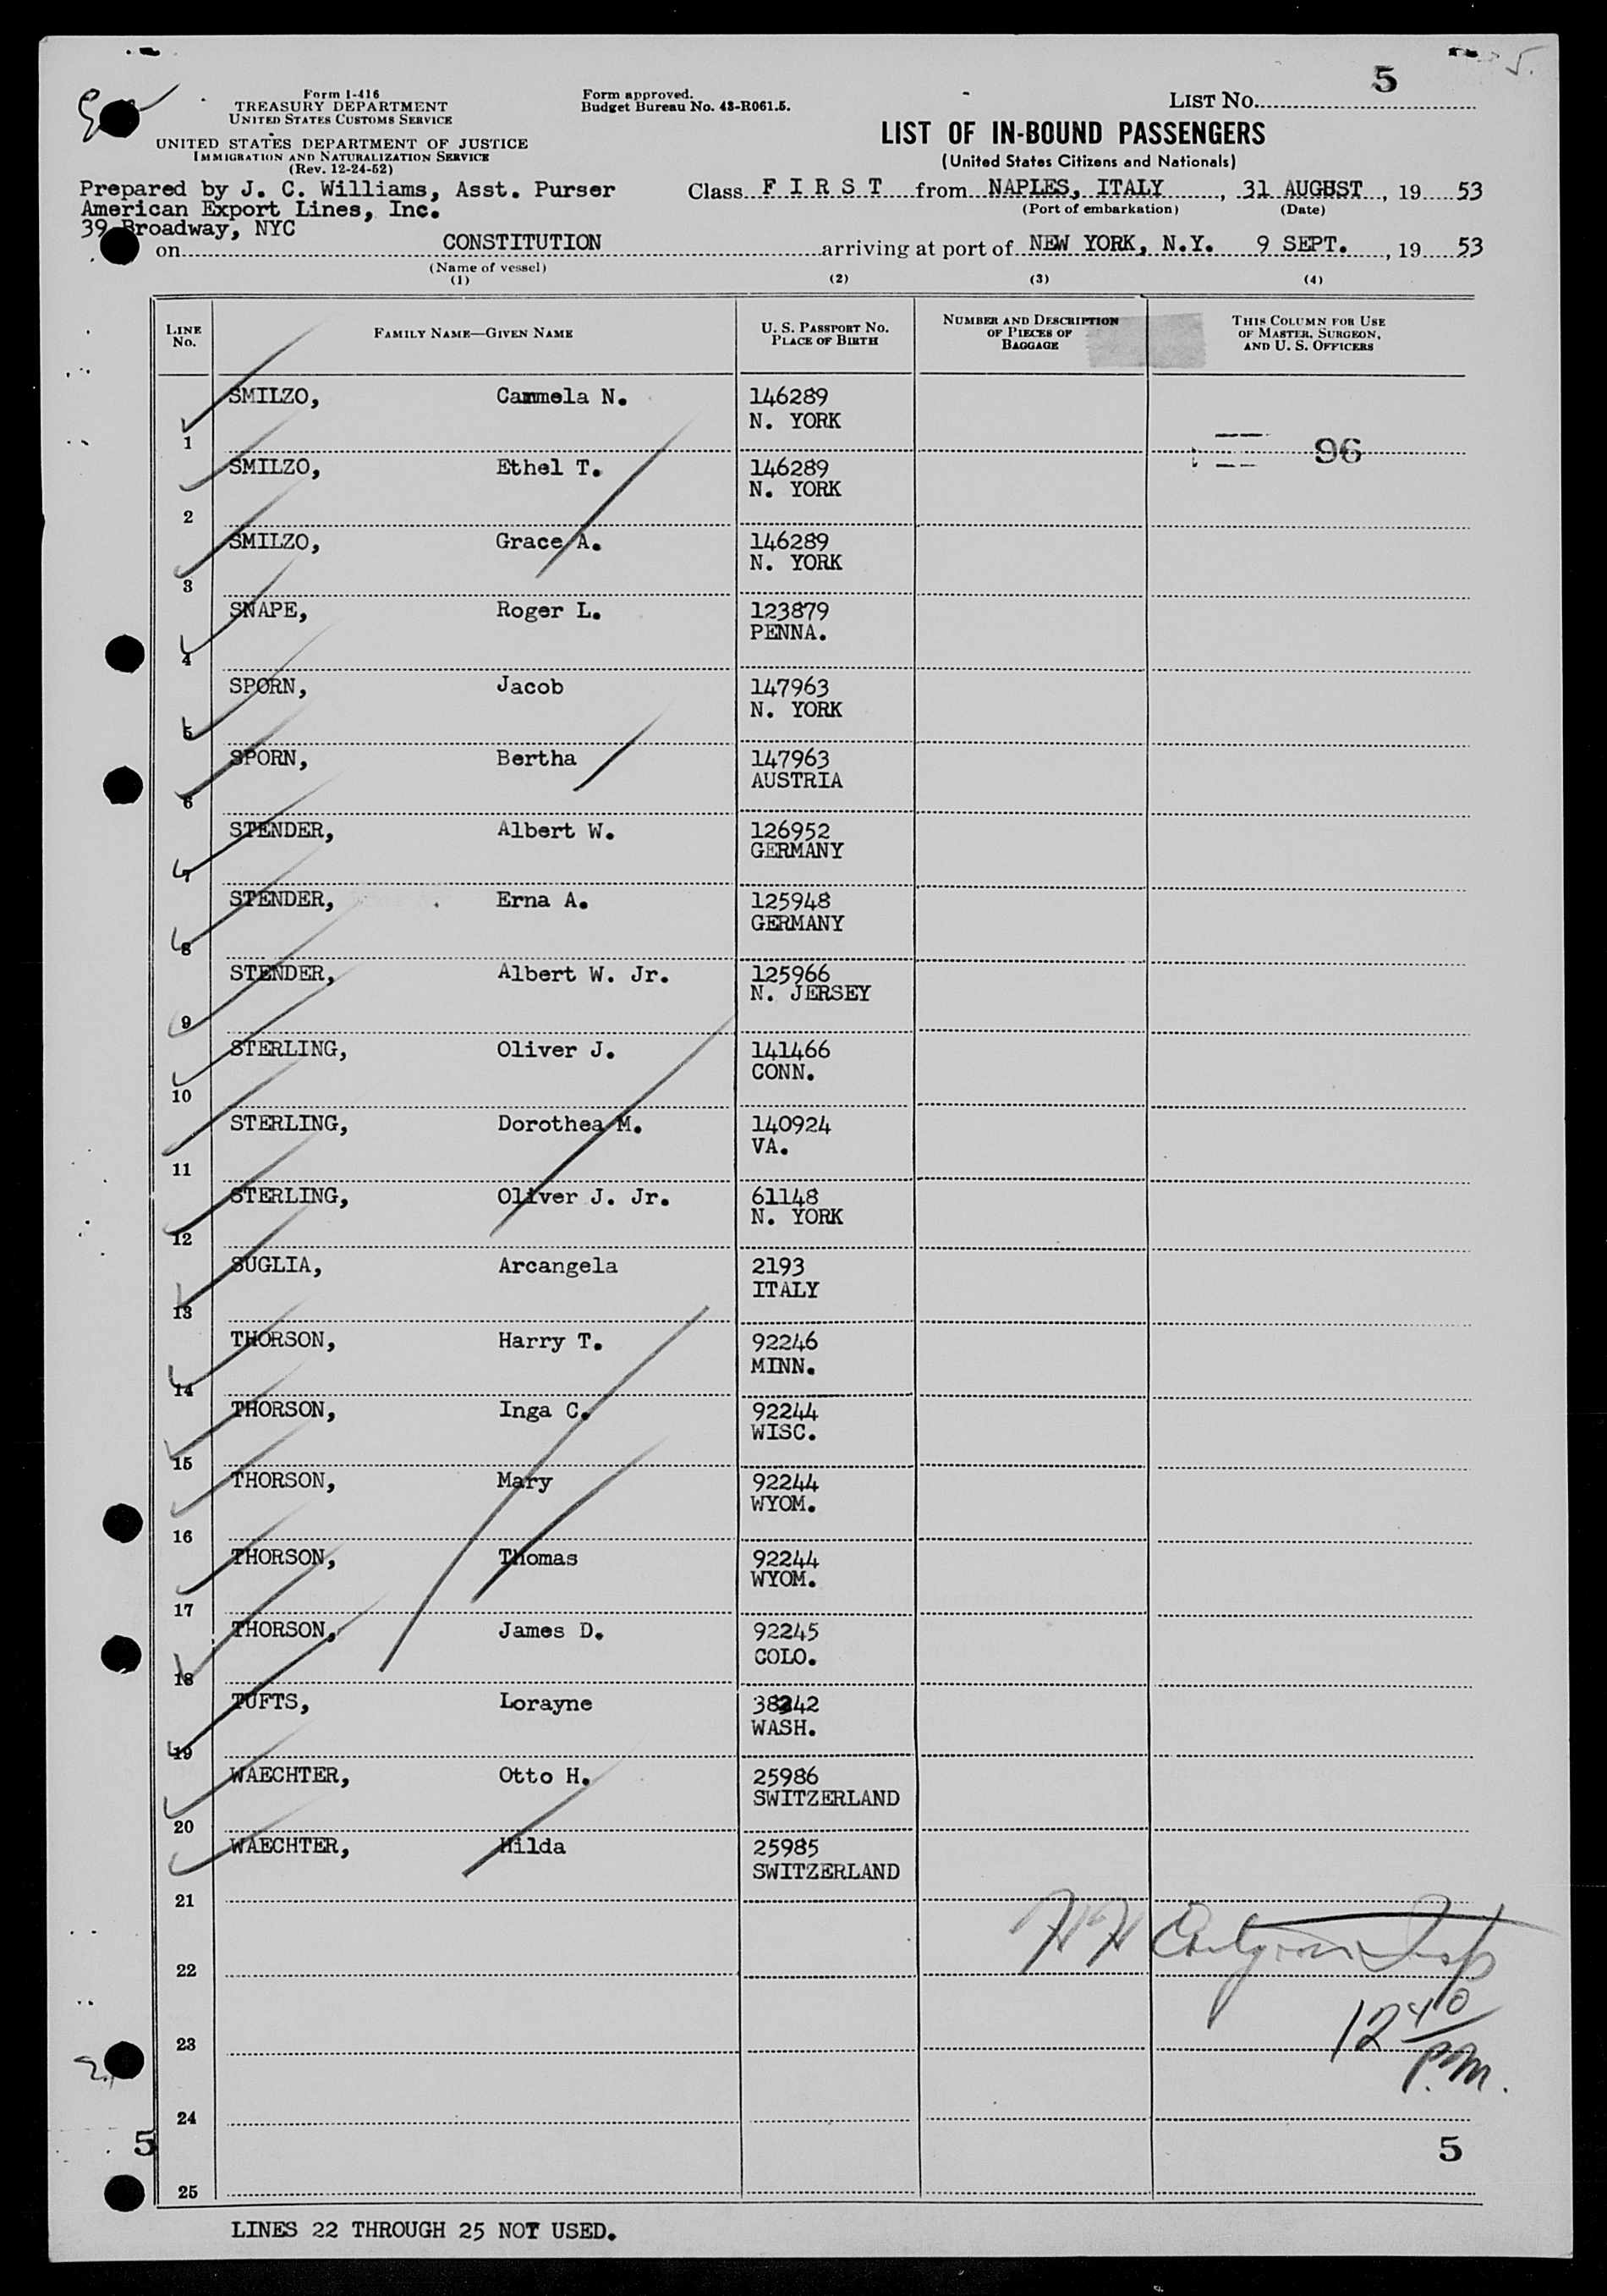 5
5.
Form I-416
TREASURY DEPARTMENT
UNITED STATES CUSTOMS SERVICE
Form approved.
Budget Bureau No. 43-R061.5.
LIST NO. 5
UNITED STATES DEPARTMENT OF JUSTICE
IMMIGRATION AND NATURALIZATION SERVICE
(Rev. 12-24-52)
LIST OF IN-BOUND PASSENGERS
(United States Citizens and Nationals)
Prepared by J. C. Williams, Asst. Purser
American Export Lines, Inc.
39 Broadway, NYC
Class F I R S T from NAPLES, ITALY, 31 AUGUST, 19 53
(Port of embarkation) (Date)
on CONSTITUTION arriving at port of NEW YORK, N.Y. 9 SEPT., 19 53
(Name of vessel)
(1) (2) (3) (4)
LINE No. FAMILY NAME—GIVEN NAME U. S. PASSPORT NO. PLACE OF BIRTH NUMBER AND DESCRIPTION OF PIECES OF BAGGAGE THIS COLUMN FOR USE OF MASTER, SURGEON, AND U. S. OFFICERS
1 SMILZO, Cammela N. 146289 N. YORK
96
2 SMILZO, Ethel T. 146289 N. YORK
3 SMILZO, Grace A. 146289 N. YORK
4 SNAPE, Roger L. 123879 PENNA.
5 SPORN, Jacob 147963 N. YORK
6 SPORN, Bertha 147963 AUSTRIA
7 STENDER, Albert W. 126952 GERMANY
8 STENDER, Erna A. 125948 GERMANY
9 STENDER, Albert W. Jr. 125966 N. JERSEY
10 STERLING, Oliver J. 141466 CONN.
11 STERLING, Dorothea M. 140924 VA.
12 STERLING, Oliver J. Jr. 61148 N. YORK
13 SUGLIA, Arcangela 2193 ITALY
14 THORSON, Harry T. 92246 MINN.
15 THORSON, Inga C. 92244 WISC.
16 THORSON, Mary 92244 WYOM.
17 THORSON, Thomas 92244 WYOM.
18 THORSON, James D. 92245 COLO.
19 TUFTS, Lorayne WASH.
20 WAECHTER, Otto H. 25986 SWITZERLAND
21 WAECHTER, Hilda 25985 SWITZERLAND
22
23
12 40 P.M.
24
5 5
25
LINES 22 THROUGH 25 NOT USED.